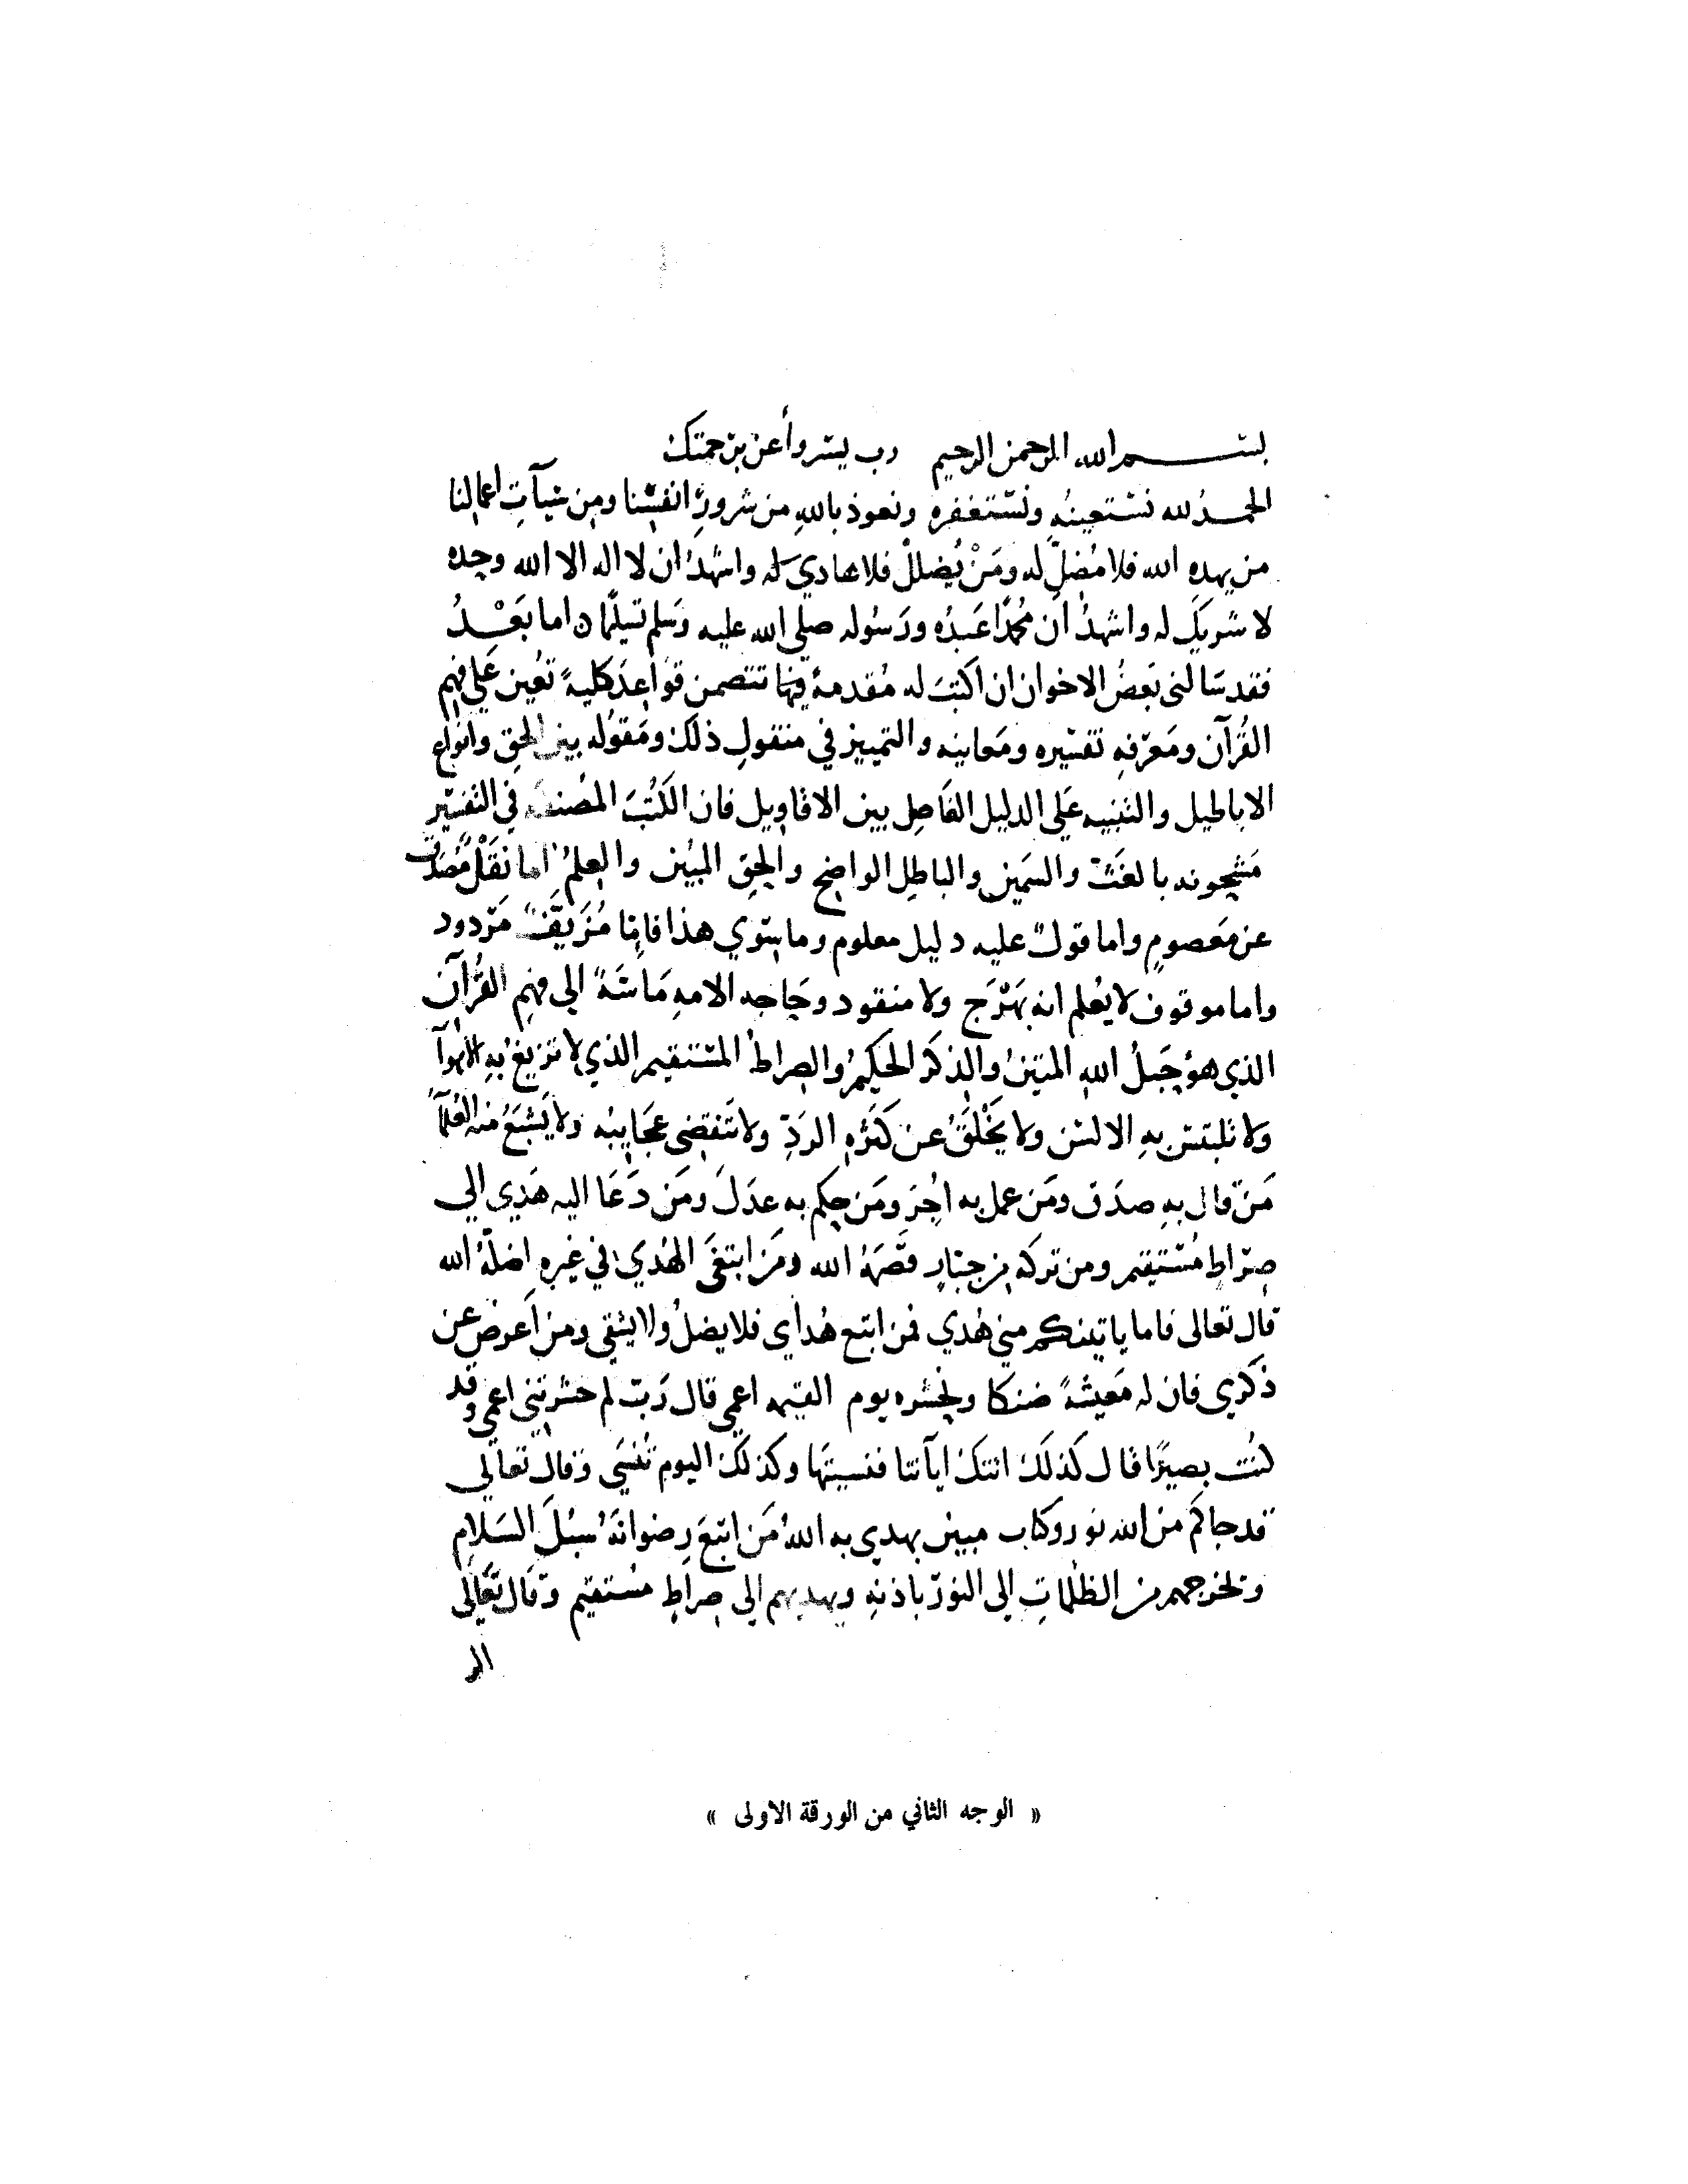 بسم الله الرحمن الرحيم رب يسر وأعن برحمتك
الحمدُ لله نستعينُه ونستغفره ونعوذ باللهِ من شرورِ انفسِنا ومِن سيآتِ اعمالنا
من يهدِه الله فلا مُضلّ له ومَنْ يُضللْ فلا هادي له واشهدُ ان لا اله الا الله وحده
لا شريكَ له واشهدُ ان مُحمدًا عَبدُه ورَسُوله صلى الله عليه وَسلم تسليمًا اما بَعْدُ
فقد سَالنى بَعضُ الاخوان ان اكتبَ له مُقدمةً فيها تتضمن قوَاعِدَ كليةً تعُين عَلى فهمِ
القُرآن ومَعرفهِ تفسيره ومَعانيه والتمييز في منقولِ ذلك ومَعقوُله بين الحق وانواع
الاباطيل والتنبيه عَلى الدليل الفَاصِل بين الاقاويل فان الكُتُبَ المصُنفه في التفسير
مَشحونه بالغَث والسَمين والباطِل الواضح والحق المبُين والعلمُ اما نَقلْ مُصَدق
عن مَعصومٍ واما قولٌ عليه دليل معلوم وما سِوي هذا فامّا مُزَيَّف مَردود
واما موقوف لا يعُلم انه بَهْرَج ولا منقود وحَاجه الامهِ مَاسَّةً الي فهمِ القرُآن
الذي هوُ حَبلُ الله المتينُ والذكَر الحكيمُ والصراطُ المستقيم الذي لا تزيغُ بهِ الاهوآ
ولا تلبتس بهِ الالسُن ولا يَخْلَقُ عن كَثرهِ الردِّ ولا تَنقضى عَجَايبُه ولا يَشبَعُ منه العُلمآ
مَنْ قال بهِ صدَق ومَن عمل به اُجِرَ ومَن حكم به عدَلَ ومَن دَعَا اليه هَدي الي
صرَاطٍ مُستقيم ومن تركه من جبَارٍ قَصَمَهُ الله ومَن ابتغَى الهُدي في غيرهِ اضلّهُ الله
قال تعالى فاما ياتينكم مني هُدي فمن اتبع هُدأي فلا يضلُ ولا يشقي ومن اَعرض عن
ذكَري فان له مَعيشةً ضنكا ونحشره يوم القيمه اعمي قال رَب لم حشرتني اعمي وقد
كنُت بصيرًا قال كَذلَك اتتك اياتنا فنسيتهَا وكذلك اليوم تُنسَي وقال تعالي
قد جاكَم من الله نور وكتاب مبين يهدي به اللهُ مَن اتبعَ رِضوانَهُ سبُلَ السَلامِ
ويخرجهم من الظلماتِ إلى النورِ باذنهِ ويهديهم الى صراطٍ مسُتقيم وقال تعَالى
الر
« الوجه الثاني من الورقة الاولى »